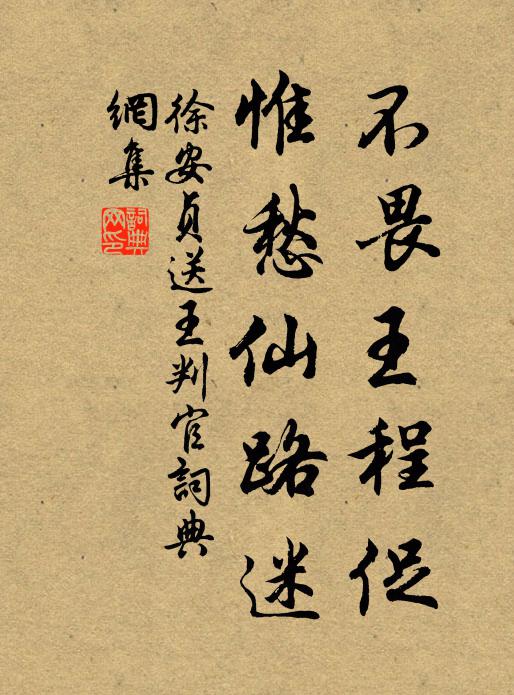 不畏王程促
惟愁仙路迷
徐安貞送王判官詞典
網集
詞典
网印